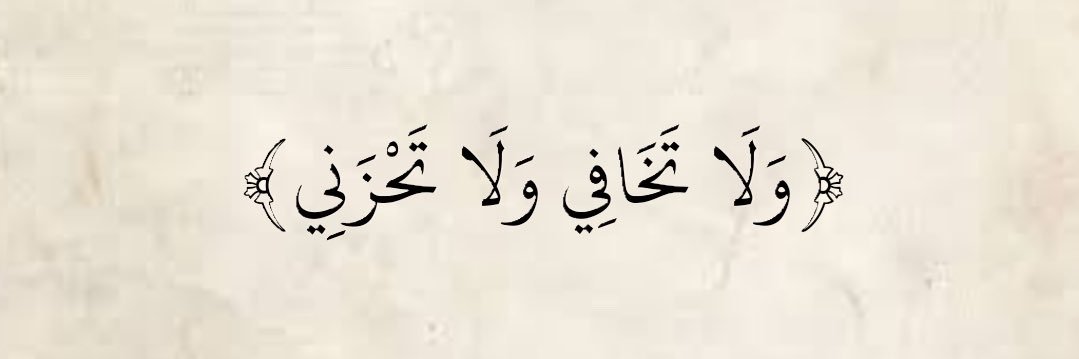 ﴿ وَلَا تَخَافِي وَلَا تَحْزَنِي ﴾